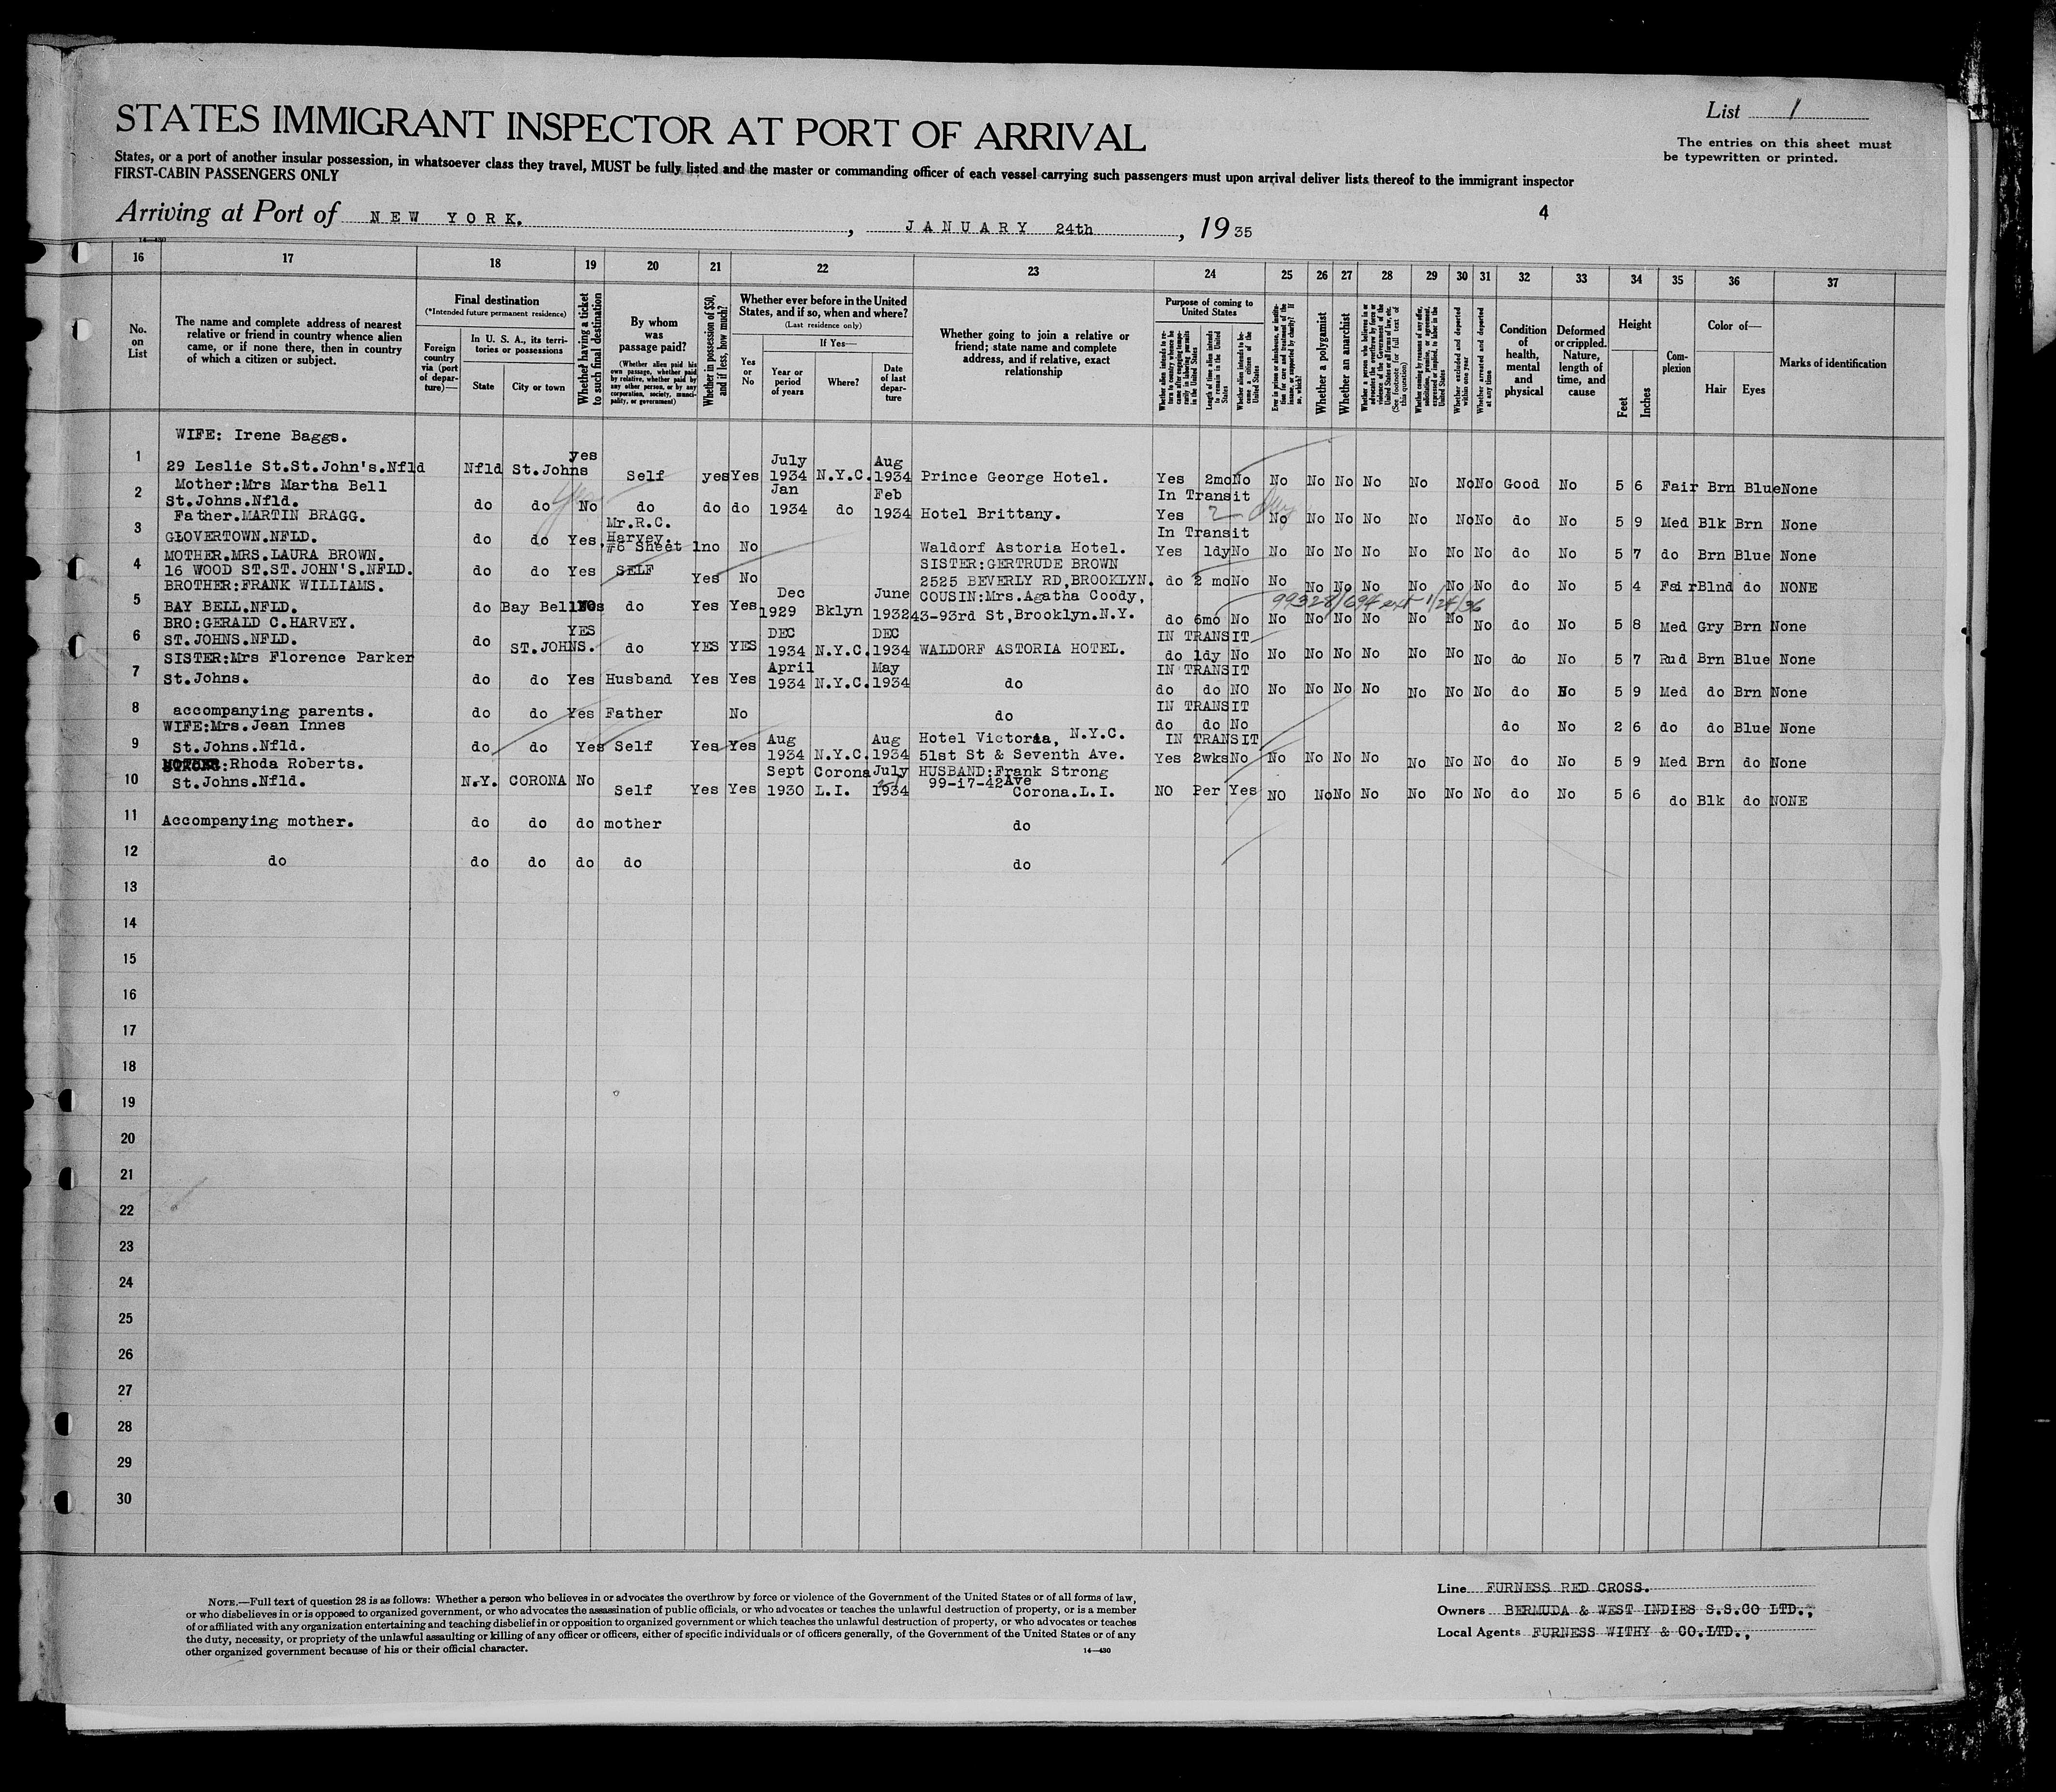 STATES IMMIGRANT INSPECTOR AT PORT OF ARRIVAL
List 1
The entries on this sheet must
be typewritten or printed.
States, or a port of another insular possession, in whatsoever class they travel, MUST be fully listed and the master or commanding officer of each vessel carrying such passengers must upon arrival deliver lists thereof to the immigrant inspector
FIRST-CABIN PASSENGERS ONLY
Arriving at Port of NEW YORK. , JANUARY 24th , 19 35
4
14—430
16 17 18 19 20 21 22 23 24 25 26 27 28 29 30 31 32 33 34 35 36 37
No. on List
The name and complete address of nearest relative or friend in country whence alien came, or if none there, then in country of which a citizen or subject.
Final destination
(*Intended future permanent residence)
Foreign country via (port of departure)—
In U. S. A., its territories or possessions
State City or town
Whether having a ticket to such final destination
By whom was passage paid?
(Whether alien paid his own passage, whether paid by relative, whether paid by any other person, or by any corporation, society, municipality, or government)
Whether in possession of $50, and if less, how much?
Whether ever before in the United States, and if so, when and where?
(Last residence only)
Yes or No
If Yes—
Year or period of years Where? Date of last departure
Whether going to join a relative or friend; state name and complete address, and if relative, exact relationship
Purpose of coming to United States
Whether alien intends to return to country whence he came after engaging temporarily in laboring pursuits in the United States
Length of time alien intends to remain in the United States
Whether alien intends to become a citizen of the United States
Ever in prison or almshouse, or institution for care and treatment of the insane, or supported by charity? If so, which?
Whether a polygamist
Whether an anarchist
(See footnote for full text of this question)
Whether coming by reason of any offer, solicitation, promise, or agreement, expressed or implied, to labor in the United States
Whether excluded and deported within one year
Whether arrested and deported at any time
Condition of health, mental and physical
Deformed or crippled. Nature, length of time, and cause
Height
Feet Inches
Complexion
Color of—
Hair Eyes
Marks of identification
WIFE: Irene Baggs.
1 29 Leslie St.St.John's.Nfld Nfld St.Johns yes Self yes Yes July 1934 N.Y.C. Aug 1934 Prince George Hotel. Yes 2mo No No No No No No No No Good No 5 6 Fair Brn Blue None
Mother:Mrs Martha Bell In Transit
2 St.Johns.Nfld. do do No do do do Jan 1934 do Feb 1934 Hotel Brittany. Yes 2 No No No No No No No do No 5 9 Med Blk Brn None
Father.MARTIN BRAGG. Mr.R.C. Harvey. In Transit
3 GLOVERTOWN.NFLD. do do Yes, #6 Sheet 1 no No Waldorf Astoria Hotel. Yes 1dy No No No No No No No No do No 5 7 do Brn Blue None
MOTHER.MRS.LAURA BROWN. SISTER:GERTRUDE BROWN
4 16 WOOD ST.ST.JOHN'S.NFLD. do do Yes SELF Yes No 2525 BEVERLY RD,BROOKLYN. do 2 mo No No No No No No No No do No 5 4 Fair Blnd do NONE
BROTHER:FRANK WILLIAMS. COUSIN:Mrs.Agatha Coody, 99328/694 ext 1/24/36
5 BAY BELL.NFLD. do Bay Bell do Yes Yes Dec 1929 Bklyn June 1932 43-93rd St,Brooklyn.N.Y. do 6mo No No No No No No No No do No 5 8 Med Gry Brn None
BRO:GERALD C.HARVEY. IN TRANSIT
6 ST.JOHNS.NFLD. do ST.JOHNS. YES do YES YES DEC 1934 N.Y.C. DEC 1934 WALDORF ASTORIA HOTEL. do 1dy No No No No No No No No do No 5 7 Rud Brn Blue None
SISTER:Mrs Florence Parker IN TRANSIT
7 St.Johns. do do Yes Husband Yes Yes April 1934 N.Y.C. May 1934 do do do NO No No No No No No No do No 5 9 Med do Brn None
IN TRANSIT
8 accompanying parents. do do Yes Father No do do do No do No 2 6 do do Blue None
WIFE:Mrs.Jean Innes Hotel Victoria, N.Y.C. IN TRANSIT
9 St.Johns.Nfld. do do Yes Self Yes Yes Aug 1934 N.Y.C. Aug 1934 51st St & Seventh Ave. Yes 2wks No No No No No No No No do No 5 9 Med Brn do None
:Rhoda Roberts. HUSBAND:Frank Strong
10 St.Johns.Nfld. N.Y. CORONA No Self Yes Yes Sept 1930 Corona L.I. July 1934 99-17-42 Ave Corona.L.I. NO Per Yes NO No No No No No No do No 5 6 do Blk do NONE
11 Accompanying mother. do do do mother do
12 do do do do do do
13
14
15
16
17
18
19
20
21
22
23
24
25
26
27
28
29
30
NOTE.—Full text of question 28 is as follows: Whether a person who believes in or advocates the overthrow by force or violence of the Government of the United States or of all forms of law,
or who disbelieves in or is opposed to organized government, or who advocates the assassination of public officials, or who advocates or teaches the unlawful destruction of property, or is a member
of or affiliated with any organization entertaining and teaching disbelief in or opposition to organized government or which teaches the unlawful destruction of property, or who advocates or teaches
the duty, necessity, or propriety of the unlawful assaulting or killing of any officer or officers, either of specific individuals or of officers generally, of the Government of the United States or of any
other organized government because of his or their official character.
14—430
Line FURNESS RED CROSS.
Owners BERMUDA & WEST INDIES S.S.CO LTD.,
Local Agents FURNESS WITHY & CO.LTD.,